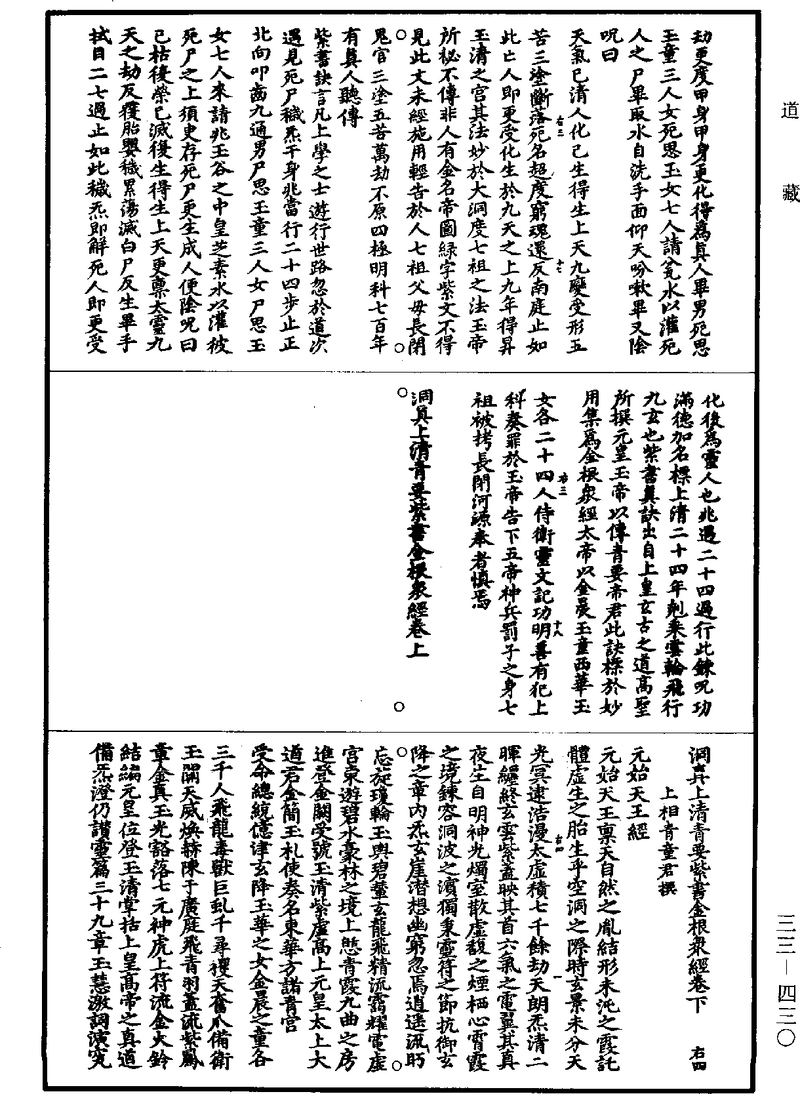 道藏
劫更度甲身甲身更化得為真人畢男死思
玉童三人女死思玉女七人請瓫水以灌死
人之尸畢取水自洗手面仰天吩啾畢又陰
呪曰
天氣已清人化已生得生上天九變受形五
苦三塗斷落死名超度窮魂還反南庭止如
此亡人即更受化生於九天之上九年得昇
玉清之宮其法妙於大洞度七祖之法玉帝
所秘不傳非人有金名帝圖綠字紫文不得
見此文未經施用輕告於人七祖父母長閉
鬼官三塗五苦萬劫不原四極明科七百年
有真人聽傳
紫書訣言凡上學之士遊行世路忽於道次
遇見死尸穢炁干身兆當行二十四步止正
北向叩齒九通男尸思玉童三人女尸思玉
女七人來請兆玉谷之中皇芝素水以灌彼
死尸之上須臾存死尸更生成人便陰呪曰
已枯復榮已滅復生得生上天更稟太靈九
天之劫反覆胎嬰穢累蕩滅白尸反生畢手
拭目二七過止如此穢炁即解死人即更受
化後為靈人也兆遇二十四過行此鍊呪功
滿德加名標上清二十四年剋乘雲輪飛行
九玄也紫書真訣出自上皇玄古之道高聖
所撰元皇玉帝以傳青要帝君此訣標於妙
用集為金根衆經太帝以金晨玉童西華玉
女各二十四人侍衛靈文記功明善有犯上
科奏罪於玉帝告下五帝神兵罰子之身七
祖被拷長閉河源奉者慎焉
洞真上清青要紫書金根衆經卷上
洞真上清青要紫書金根衆經卷下 右四
上相青童君撰
元始天王經
元始天王稟天自然之胤結形未沌之霞託
體虛生之胎生乎空洞之際時玄景未分天
光冥遠浩漫太虛積七千餘劫天朗炁清二
暉纏絡玄雲紫蓋映其首六氣之電翼其真
夜生自明神光燭室散虛馥之煙栖心霄霞
之境鍊容洞波之濱獨秉靈符之節抗御玄
降之章內炁玄崖潛想幽窮忽焉逍遙流盻
忘旋瓊輪玉輿碧輦玄龍飛精流靄耀電虛
宮東遊碧水豪林之境上憩青霞九曲之房
進登金闕受號玉清紫虛高上元皇太上大
道君金簡玉札使奏名東華方諸青宮
受命總統億津玄降玉華之女金晨之童各
三千人飛龍毒獸巨虬千尋玃天奮爪備衛
玉闕天威煥赫陳于廣庭飛青羽蓋流紫鳳
章金真玉光豁落七元神虎上符流金火鈴
結編元皇位登玉清掌括上皇高帝之真道
備炁澄仍讚靈篇三十九章玉慧激詞演究
三三－四三〇